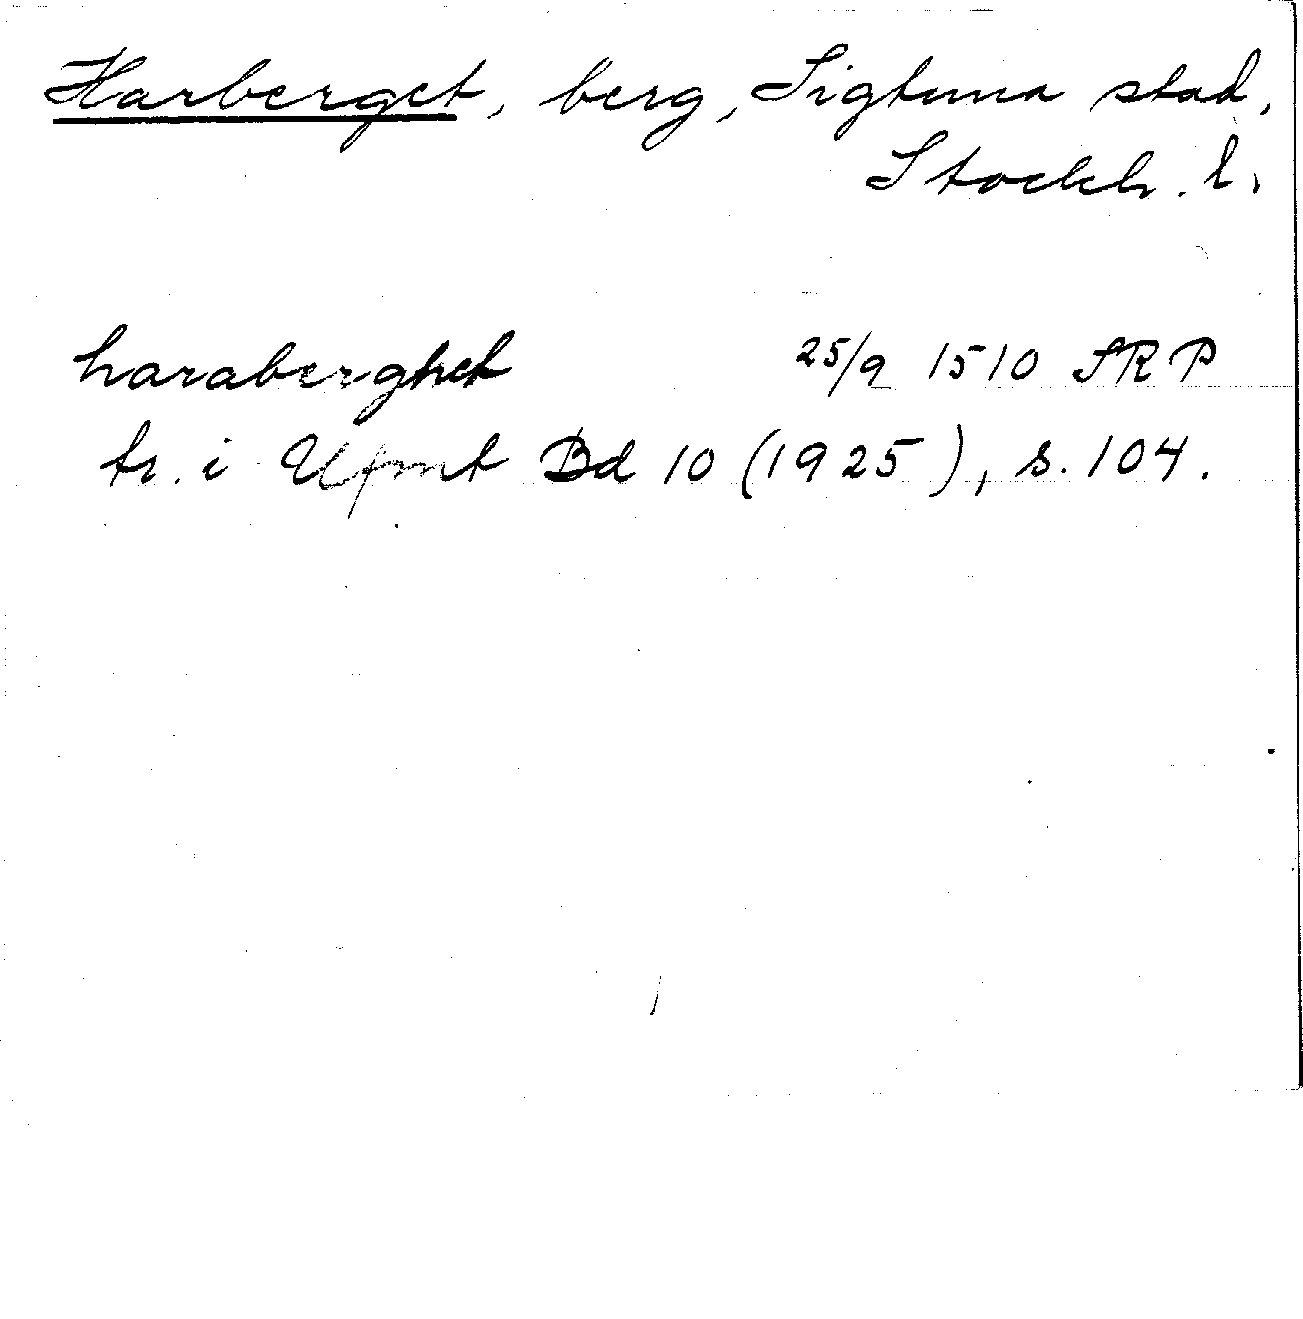 Harberget, berg, Sigtuna stad,
Stockh. l.
haraberghet 25/9 1510 SRP
tr. i Ufmt Bd 10 (1925), s. 104.